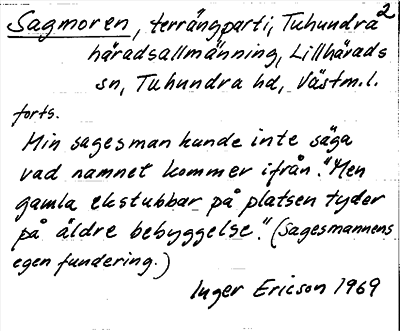 Sagmoren, terrängparti, Tuhundra 2
häradsallmänning, Lillhärads
sn, Tuhundra hd, Västm.l.
forts.
Min sagesman kunde inte säga
vad namnet kommer ifrån. "Men
gamla ekstubbar på platsen tyder
på äldre bebyggelse." (Sagesmannens
egen fundering.)
Inger Ericson 1969